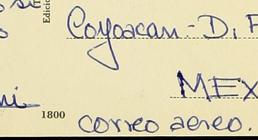 Coyoacan - D, F
MEX
1800
correo aereo.
Edicio